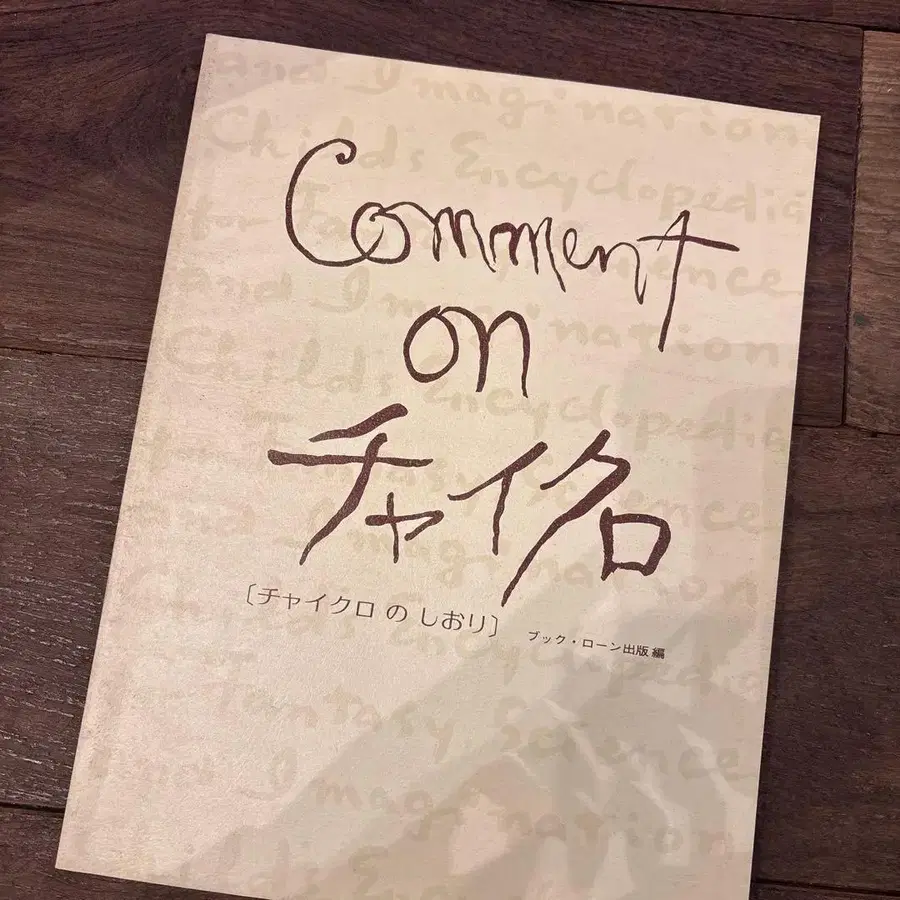 and Imagination
Child's Encyclopedia
for Fa
Comment
ence
and Imagination
on
Child's Encyclopedia
for Fantasy, Science
チャイクロ
and Imagination
〔チャイクロ の しおり〕 ブック・ローン出版 編
Child's Encyclopedia
for Fantasy, Science
and Imagination
Child's Encyclopedia